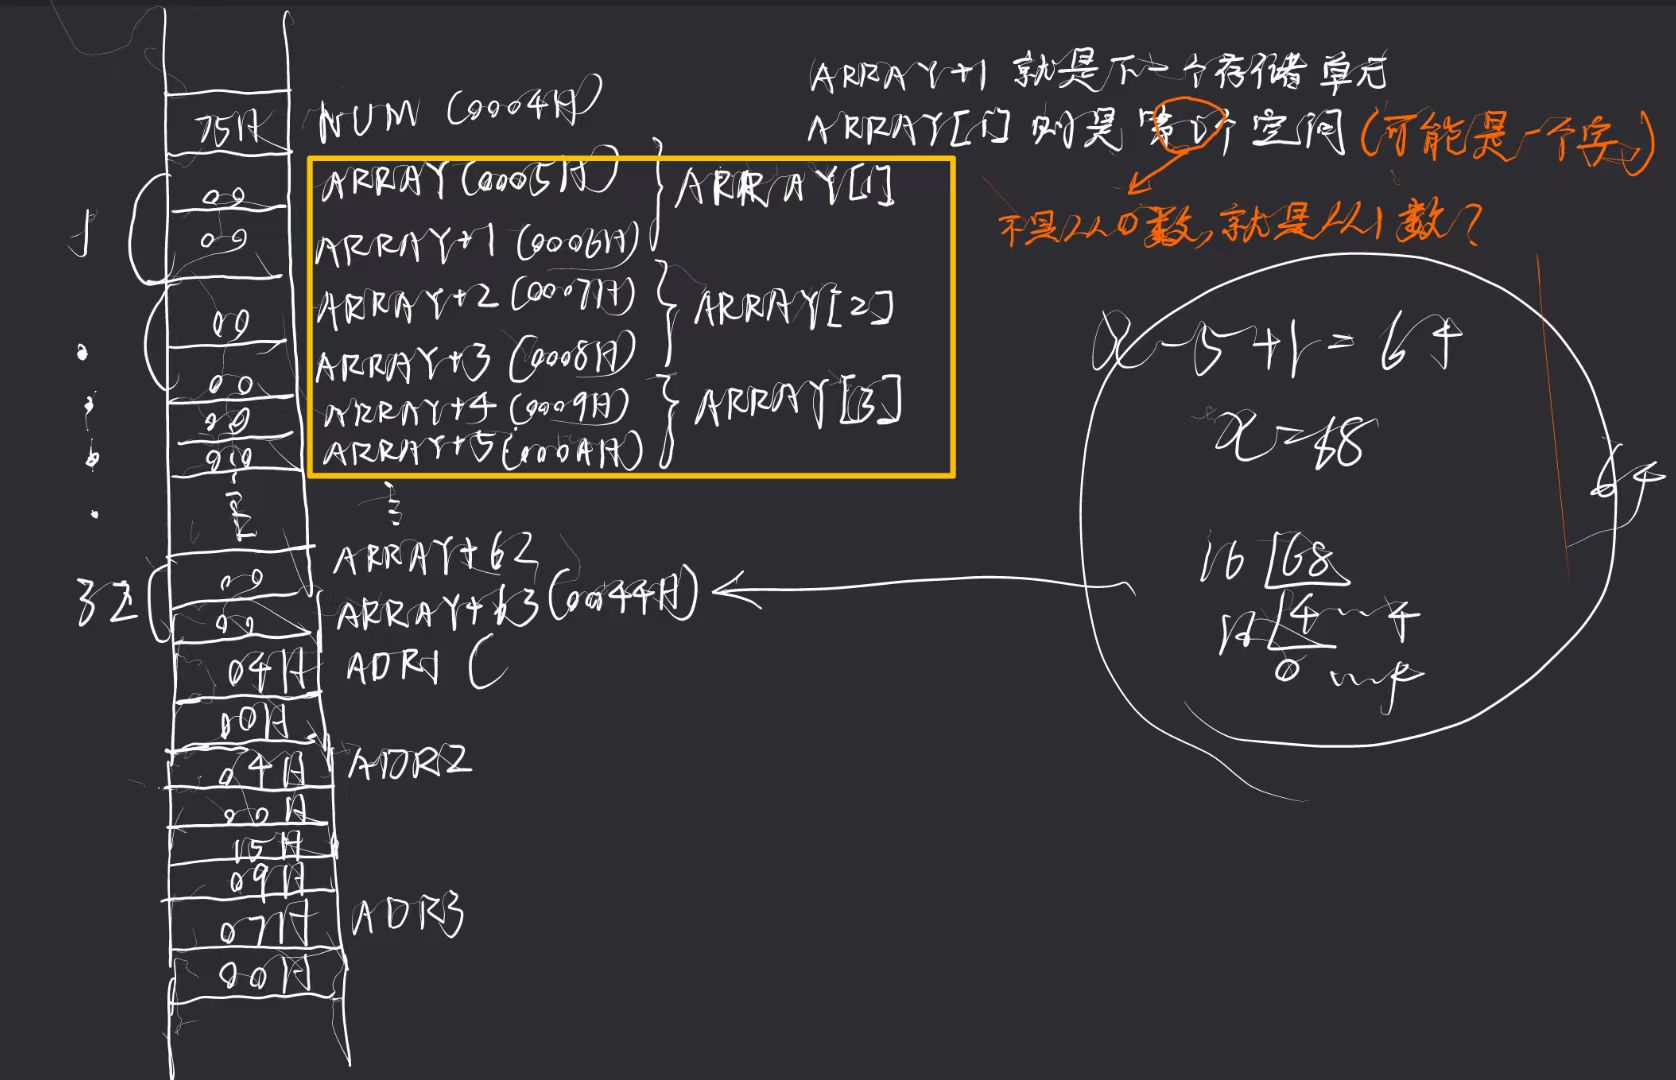 ARRAY+1 就是下一个存储单元
ARRAY[1] 则是第1个空间 (可能是一个字)
不是从0数,就是从1数?
75H NUM (0004H)
00 ARRAY (0005H)
ARRAY[1]
00 ARRAY+1 (0006H)
1
00 ARRAY+2 (0007H)
ARRAY[2]
00 ARRAY+3 (0008H)
00 ARRAY+4 (0009H)
ARRAY[3]
00 ARRAY+5 (000AH)
00 ARRAY+62
32
00 ARRAY+63 (0044H)
04H ADR1 (
00H
04H ADR2
00H
15H
09H
07H ADR3
00H
x-5+1=64
x=68
64
16 68
16 4 … 4
0 … 4